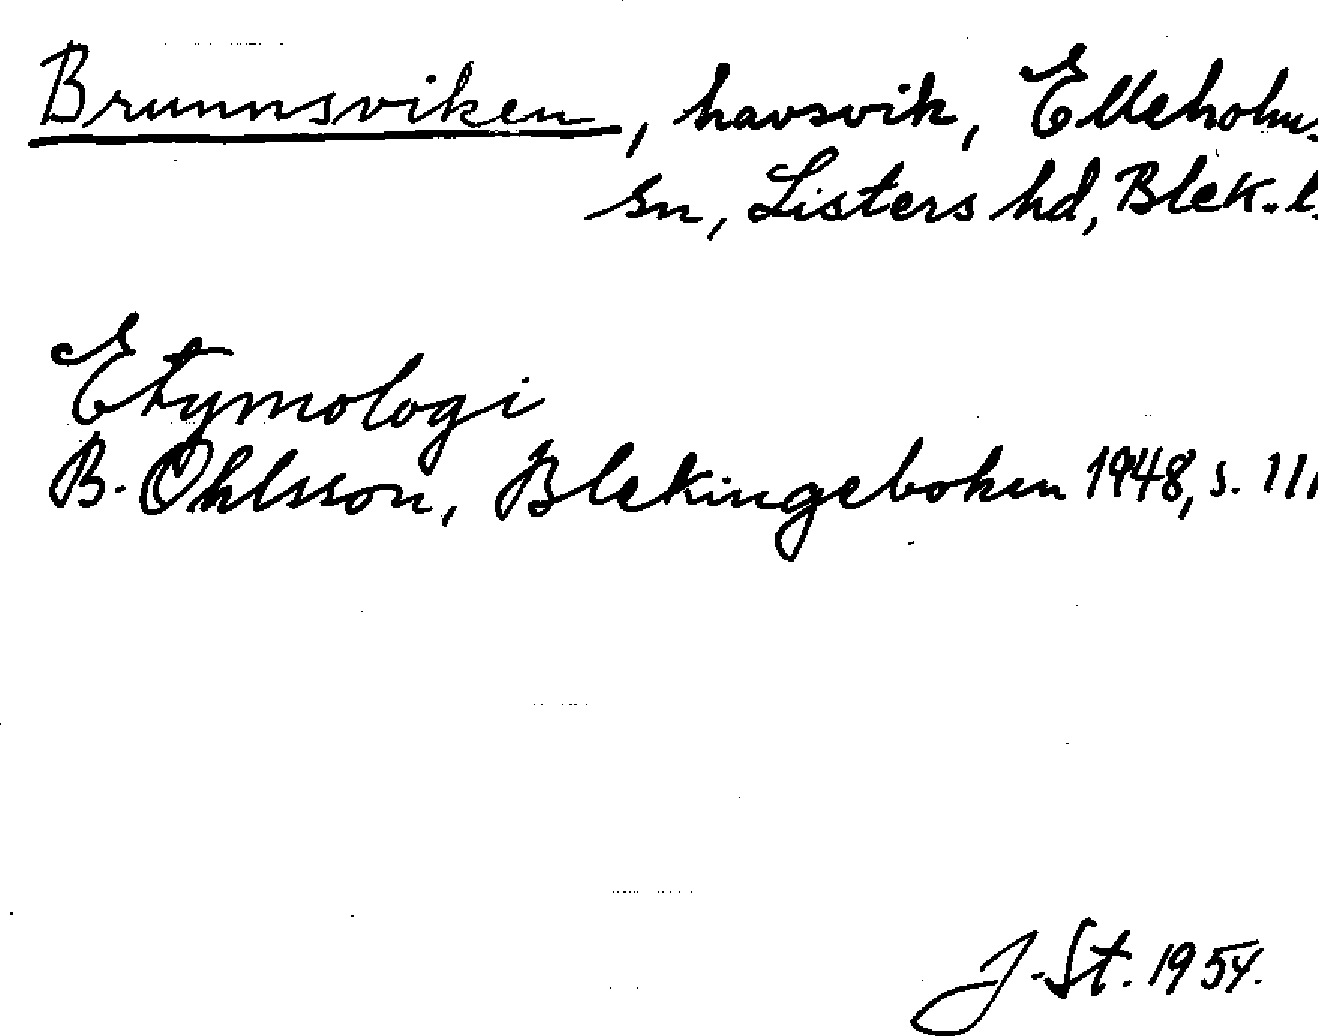 Brunnsviken, havsvik, Elleholms
sn, Listers hd, Blek. l.
Etymologi
B. Ohlsson, Blekingeboken 1948, s. 111
J. St. 1954.